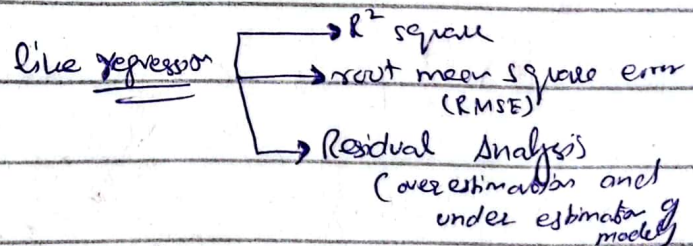 R² square
like regression
root mean square error
(RMSE)
Residual Analysis
(overestimation and
under estimation of
model)